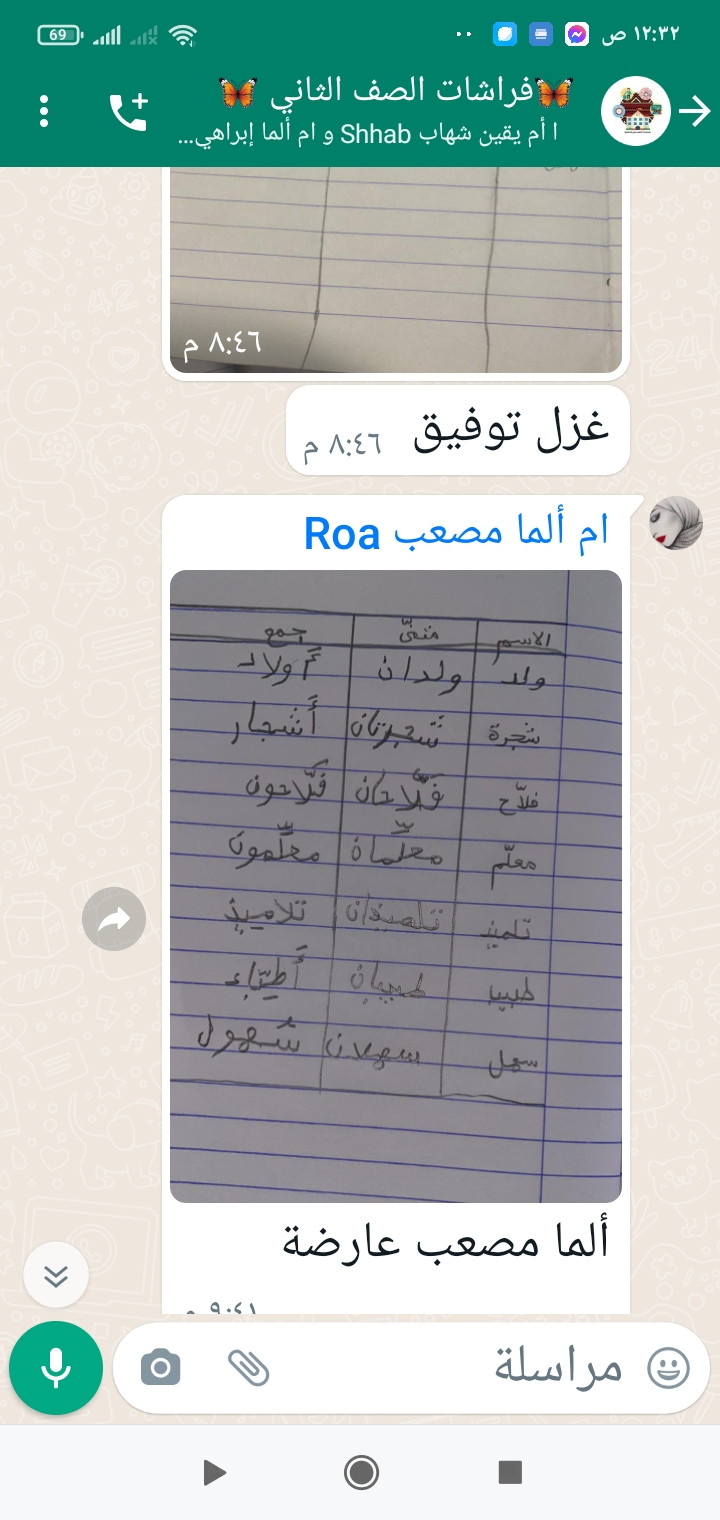 69 ١٢:٣٢ ص
🦋فراشات الصف الثاني 🦋
ا أم يقين شهاب Shhab و ام ألما إبراهي...
٨:٤٦ م
غزل توفيق
٨:٤٦ م
ام ألما مصعب Roa
الاسم مثنّى جمع
ولد ولدان أولاد
شجرة شجرتان أشجار
فلاّح فلّاحان فلّاحون
معلّم معلّمان معلّمون
تلميذ تلميذان تلاميذ
طبيب طبيبان أطبّاء
سهل سهلان سُهول
ألما مصعب عارضة
٩:٤١ م
مراسلة